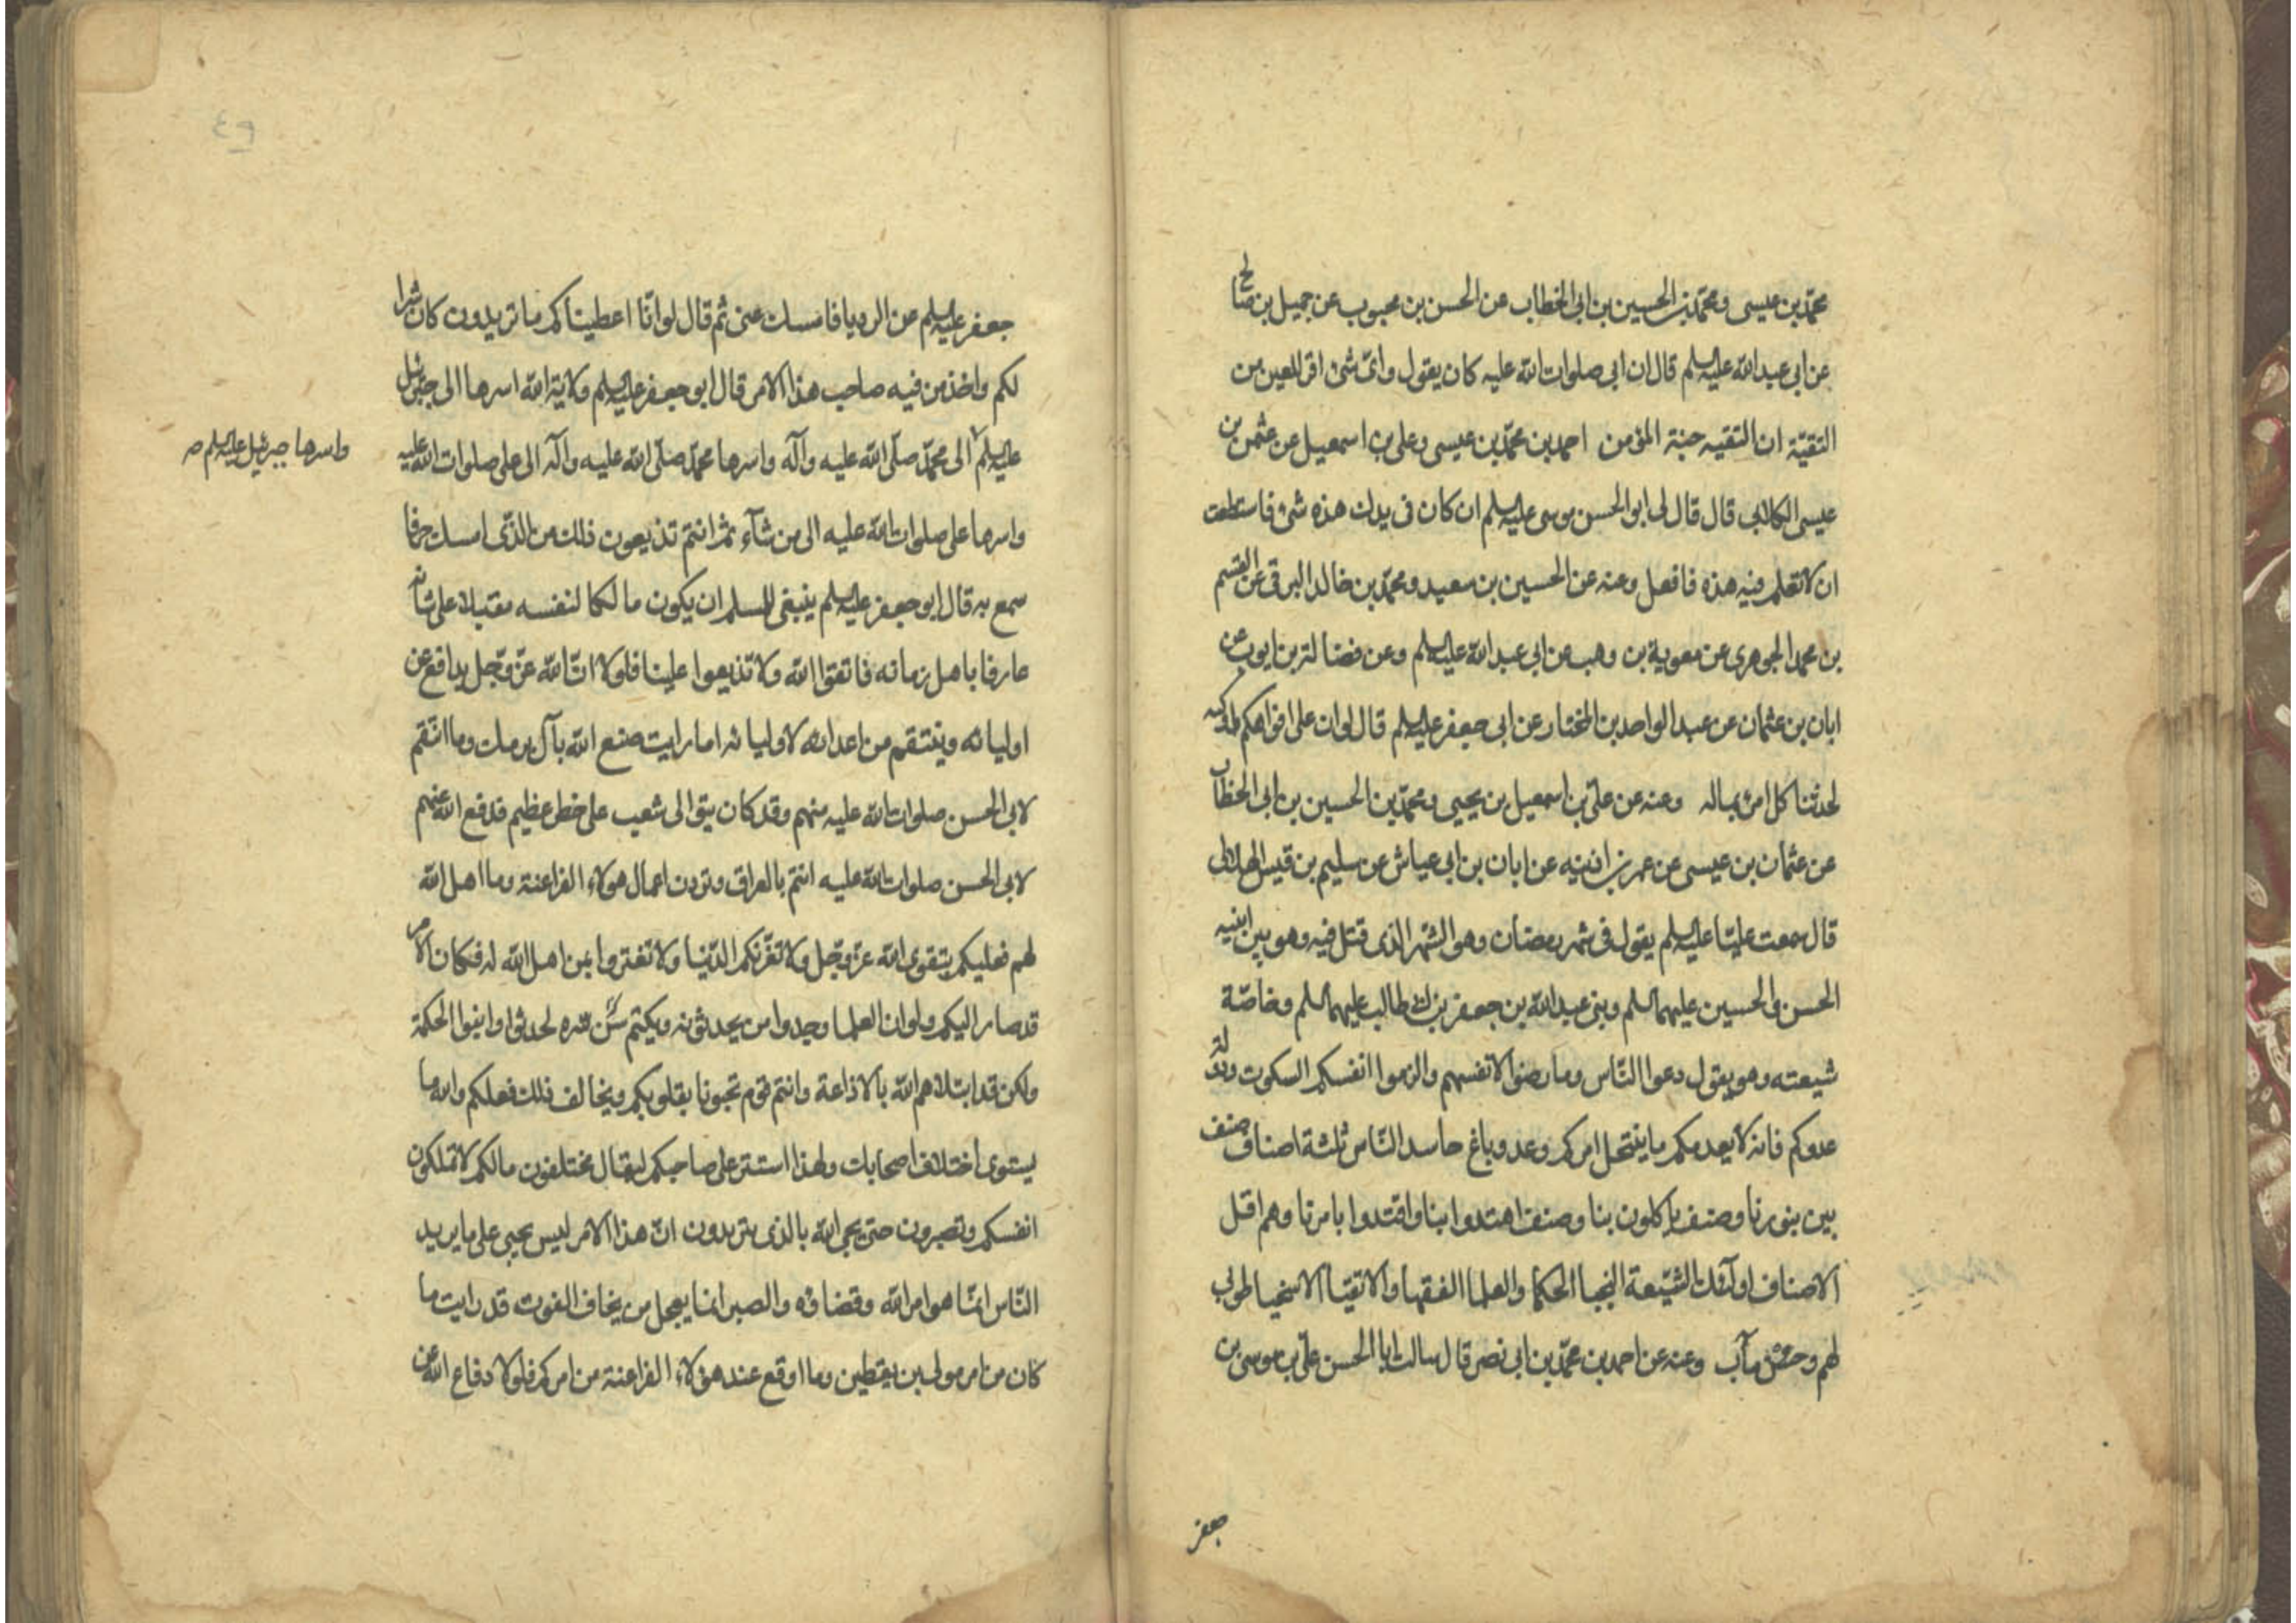 محمّد بن عيسى ومحمّد بن الحسين بن ابى الخطاب عن الحسن بن محبوب عن جميل بن صالح
عن ابى عبد الله عليه السلم قال ان ابى صلوات الله عليه كان يقول واىّ شئ اقر للعين من
التقيّة ان التقيه جنة المؤمن احمد بن محمّد بن عيسى وعلى بن اسمعيل عن عثمن بن
عيسى الكلابى قال قال لى ابو الحسن موسى عليه السلم ان كان فى يدك هذه شئ فاستطعت
ان لا تعلم فيه هذه فافعل وعنه عن الحسين بن سعيد ومحمّد بن خالد البرقى عن القسم
بن محمد الجوهرى عن معوية بن وهب عن ابى عبد الله عليه السلم وعن فضالة بن ايوب عن
ابان بن عثمان عن عبد الواحد بن المختار عن ابى جعفر عليه السلم قال لو ان على افواهكم اوكيه
لحدثنا كل امرئ بماله وعنه عن علىّ بن اسمعيل بن يحيى ومحمّد بن الحسين بن ابى الخطاب
عن عثمان بن عيسى عن عمر بن اذينه عن ابان بن ابى عياش عن سليم بن قيس الهلالى
قال سمعت عليّا عليه السلم يقول فى شهر رمضان وهو الشهر الذى قتل فيه وهو بين ابنيه
الحسن والحسين عليهما السلم وبنى عبد الله بن جعفر بن ابى طالب عليهم السلم وخاصّة
شيعته وهو يقول دعوا النّاس وما رضوا لانفسهم والزموا انفسكم السكوت ودولة
عدوكم فانه لا يعدمكم ما ينتحل امركم وعدو باغ حاسد النّاس ثلثة اصناف صنف
بين بنورنا وصنف ياكلون بنا وصنف اهتدوا بنا واقتدوا بامرنا وهم اقل
الاصناف اولئك الشيّعة النجبا الحكما والعلما الفقها والاتقيا الاسخيا طوبى
لهم وحسن مآب وعنه عن احمد بن محمّد بن ابى نصر قال سالت ابا الحسن علىّ بن موسى بن
جعفر
جعفر عليه السلم عن الرديا فامسك عنى ثم قال لو انّا اعطيناكم ما تريدون كان شرا
لكم واخذ من فيه صاحب هذا الامر قال ابو جعفر عليه السلم ولاية الله اسرها الى جبرئيل
عليه السلم الى محمّد صلّى الله عليه وآله واسرها محمّد صلّى الله عليه وآله الى على صلوات الله عليه
واسرها جبرئيل عليه السلم صح
واسرها على صلوات الله عليه الى من شآء ثم انتم تذيعون ذلك من الذّى امسك حرفا
سمع به قال ابو جعفر عليه السلم ينبغى للمسلم ان يكون مالكا لنفسه مقبلا على شانه
عارفا باهل زمانه فاتقوا الله ولا تذيعوا علينا فلولا انّ الله عزّ وجّل يدافع عن
اوليائه وينتقم من اعدائه لاوليائه اما رايت صنع الله بآل برمك وما انتقم
لابى الحسن صلوات الله عليه منهم وقد كان بنو الى شعيب على خطر عظيم فدفع الله عنهم
لابى الحسن صلوات الله عليه انتم بالعراق وترون اعمال هولاء الفراعنة وما اهل الله
لهم فعليكم بتقوى الله عزّ وجّل ولا تغرّنكم الدّنيا ولا تغتروا بمن اهل الله له فكان الامر
قد صار اليكم ولو ان العلما وجدوا من يحدثونه ويكتم سرّه لحدثوا وابنوا الحكمة
ولكن قد ابتلاهم الله بالاذاعة وانتم قوم تحبونا بقلوبكم ويخالف ذلك فعلكم والله ما
يستوى اختلاف اصحابك ولهذا استتر على صاحبكم ليقال مختلفون مالكم لا تملكون
انفسكم وتصبرون حتى يجى الله بالذى تريدون انّ هذا الامر ليس يجيى على ما يريد
النّاس انّما هو امر الله وقضاؤه والصبر انما يعجل من يخاف الفوت قد رايت ما
كان من امر مولى بن يقطين وما اوقع عند هؤلاء الفراعنة من امركم فلولا دفاع الله عن